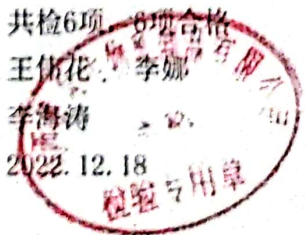 共检6项，6项合格
王伟花、李娜
李海涛
2022.12.18
检验专用章